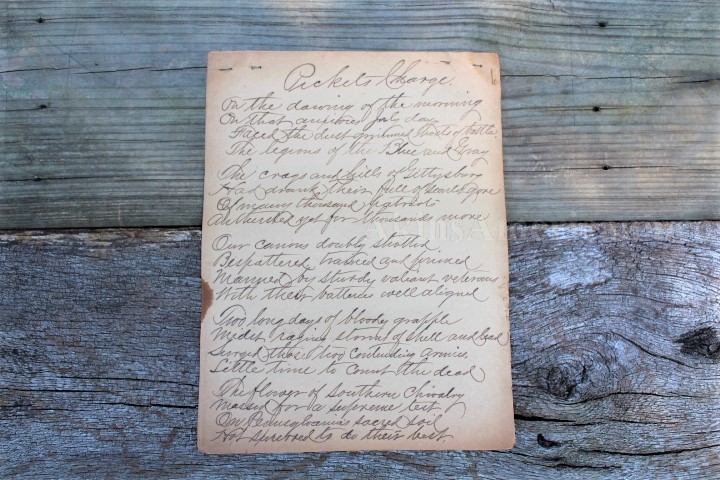 Pickets Charge.
On the dawing of the morning
On that auspicious July day
Faced the dust begrimed hosts of battle,
The legions of the Blue and Gray
The crags and hills of Gettysburg
Had drank their full of scarlet gore
Of many thousand patriots
And thirsted yet for thousands more
Our canons doubly shotted,
Bespattered, battered and
Manned by sturdy valiant veterans
With their batteries well aligned
Two long days of bloody grapple
Midst raging storms of shell and lead
Surged those two contending armies,
Little time to count the dead
The flower of Southern Chivalry
Massed for a supreme test
On Pennsylvanias sacred soil
Hot spurred to do their best